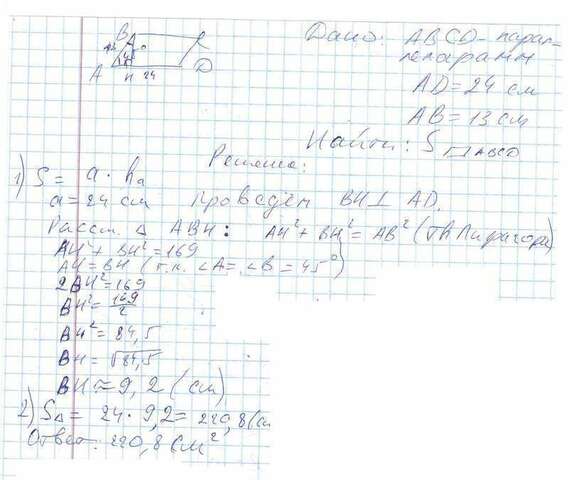 Дано: ABCD - парал-
лелограмм
AD = 24 см
AB = 13 см
Найти: S ▱ ABCD
B C
A H 24 D
Решение:
1) S = a · ha
a = 24 см Проведём BH ⊥ AD.
Рассм. Δ ABH: AH² + BH² = AB² (т. Пифагора)
AH² + BH² = 169
AH = BH (т.к. ∠A = ∠B = 45°)
2BH² = 169
BH² = 169/2
BH² = 84,5
BH = √84,5
BH ≈ 9,2 (см)
2) S△ = 24 · 9,2 = 220,8 (см
Ответ: 220,8 см²